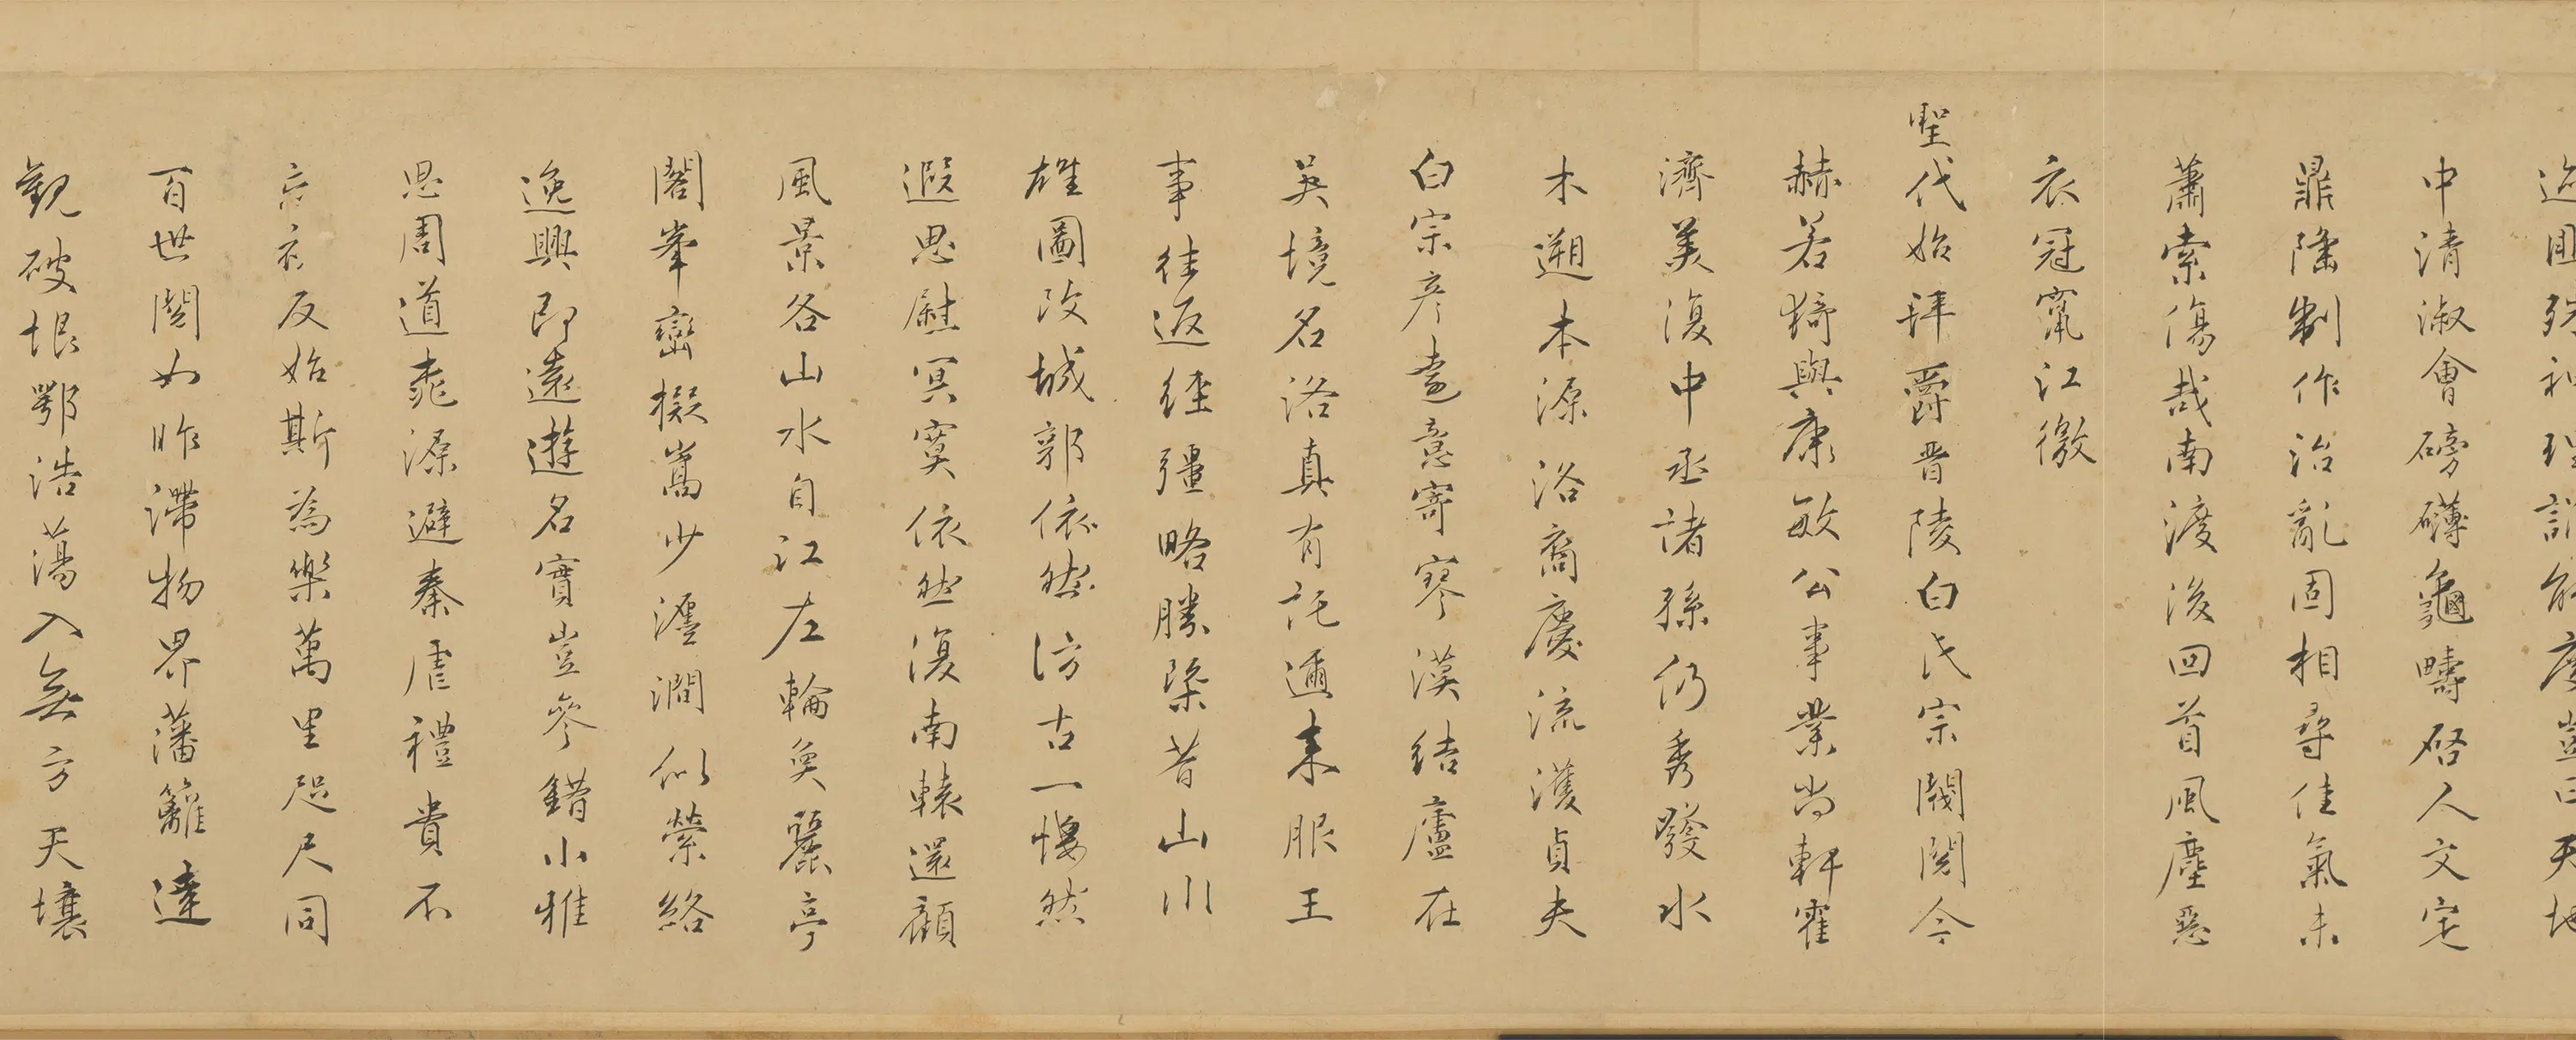 中清淑會磅礴龜疇啓人文定
鼎隆制作治亂固相尋佳氣未
蕭索傷哉南渡後回首風塵惡
衣冠竄江徼
聖代始拜爵晉陵白氏宗閥閱今
赫若猗與康敏公事業尚軒霍
濟美復中丞諸孫仍秀發水
木遡本源洛裔慶流濩貞夫
白宗彥意寄寥漠結廬在
吳境名洛真有託邇來服王
事往返經疆略勝槩昔山川
雄圖改城郭依然訪古一慨然
遐思慰冥寞依然復南轅還顧
風景各山水自江左輪奐麗亭
閣峯巒擬嵩少瀍澗似縈絡
逸興即遠遊名實豈參錯小雅
思周道源避秦虐禮貴不
忘衣反始斯為樂萬里咫尺同
百世閱如昨滯物界藩籬達
觀破垠鄂浩蕩入無方天壤